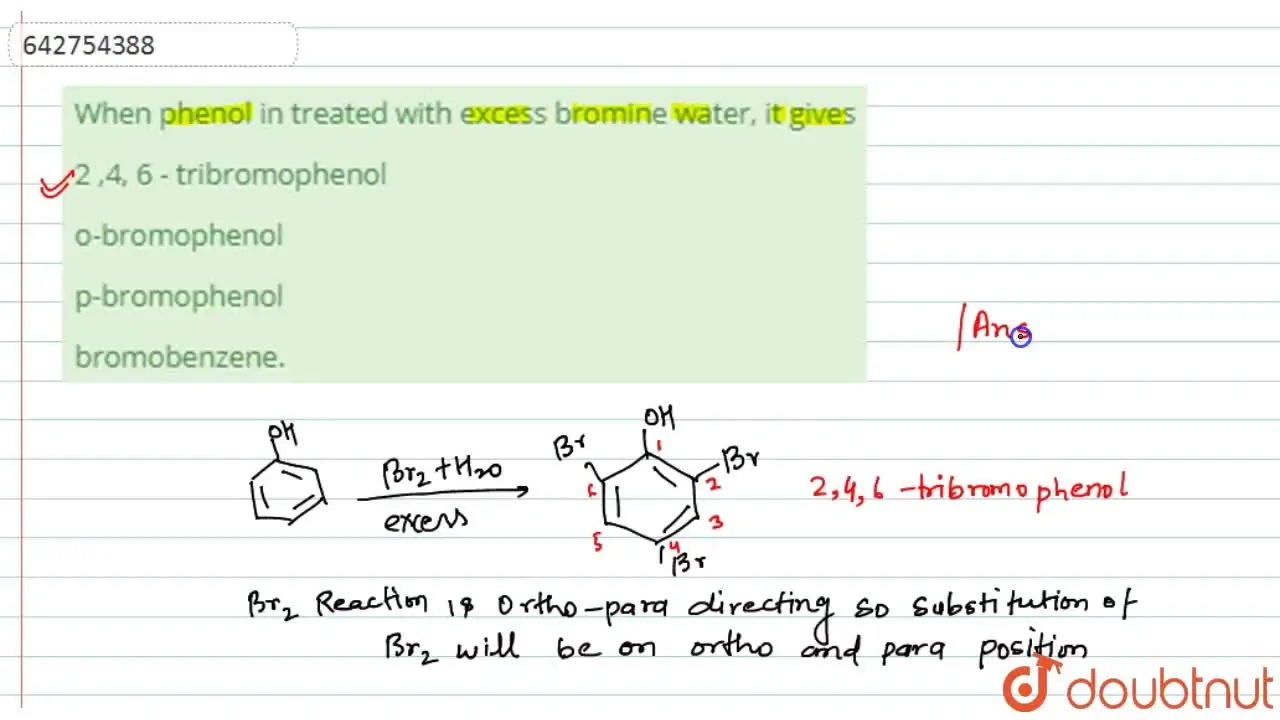 642754388
When phenol in treated with excess bromine water, it gives
2 ,4, 6 - tribromophenol
o-bromophenol
p-bromophenol
bromobenzene.
Ans
OH
Br2 + H2O
excess
OH
Br
Br
1
2
3
4
5
6
Br
2,4,6 -tribromophenol
Br2 Reaction is Ortho-para directing so substitution of
Br2 will be on ortho and para position
doubtnut